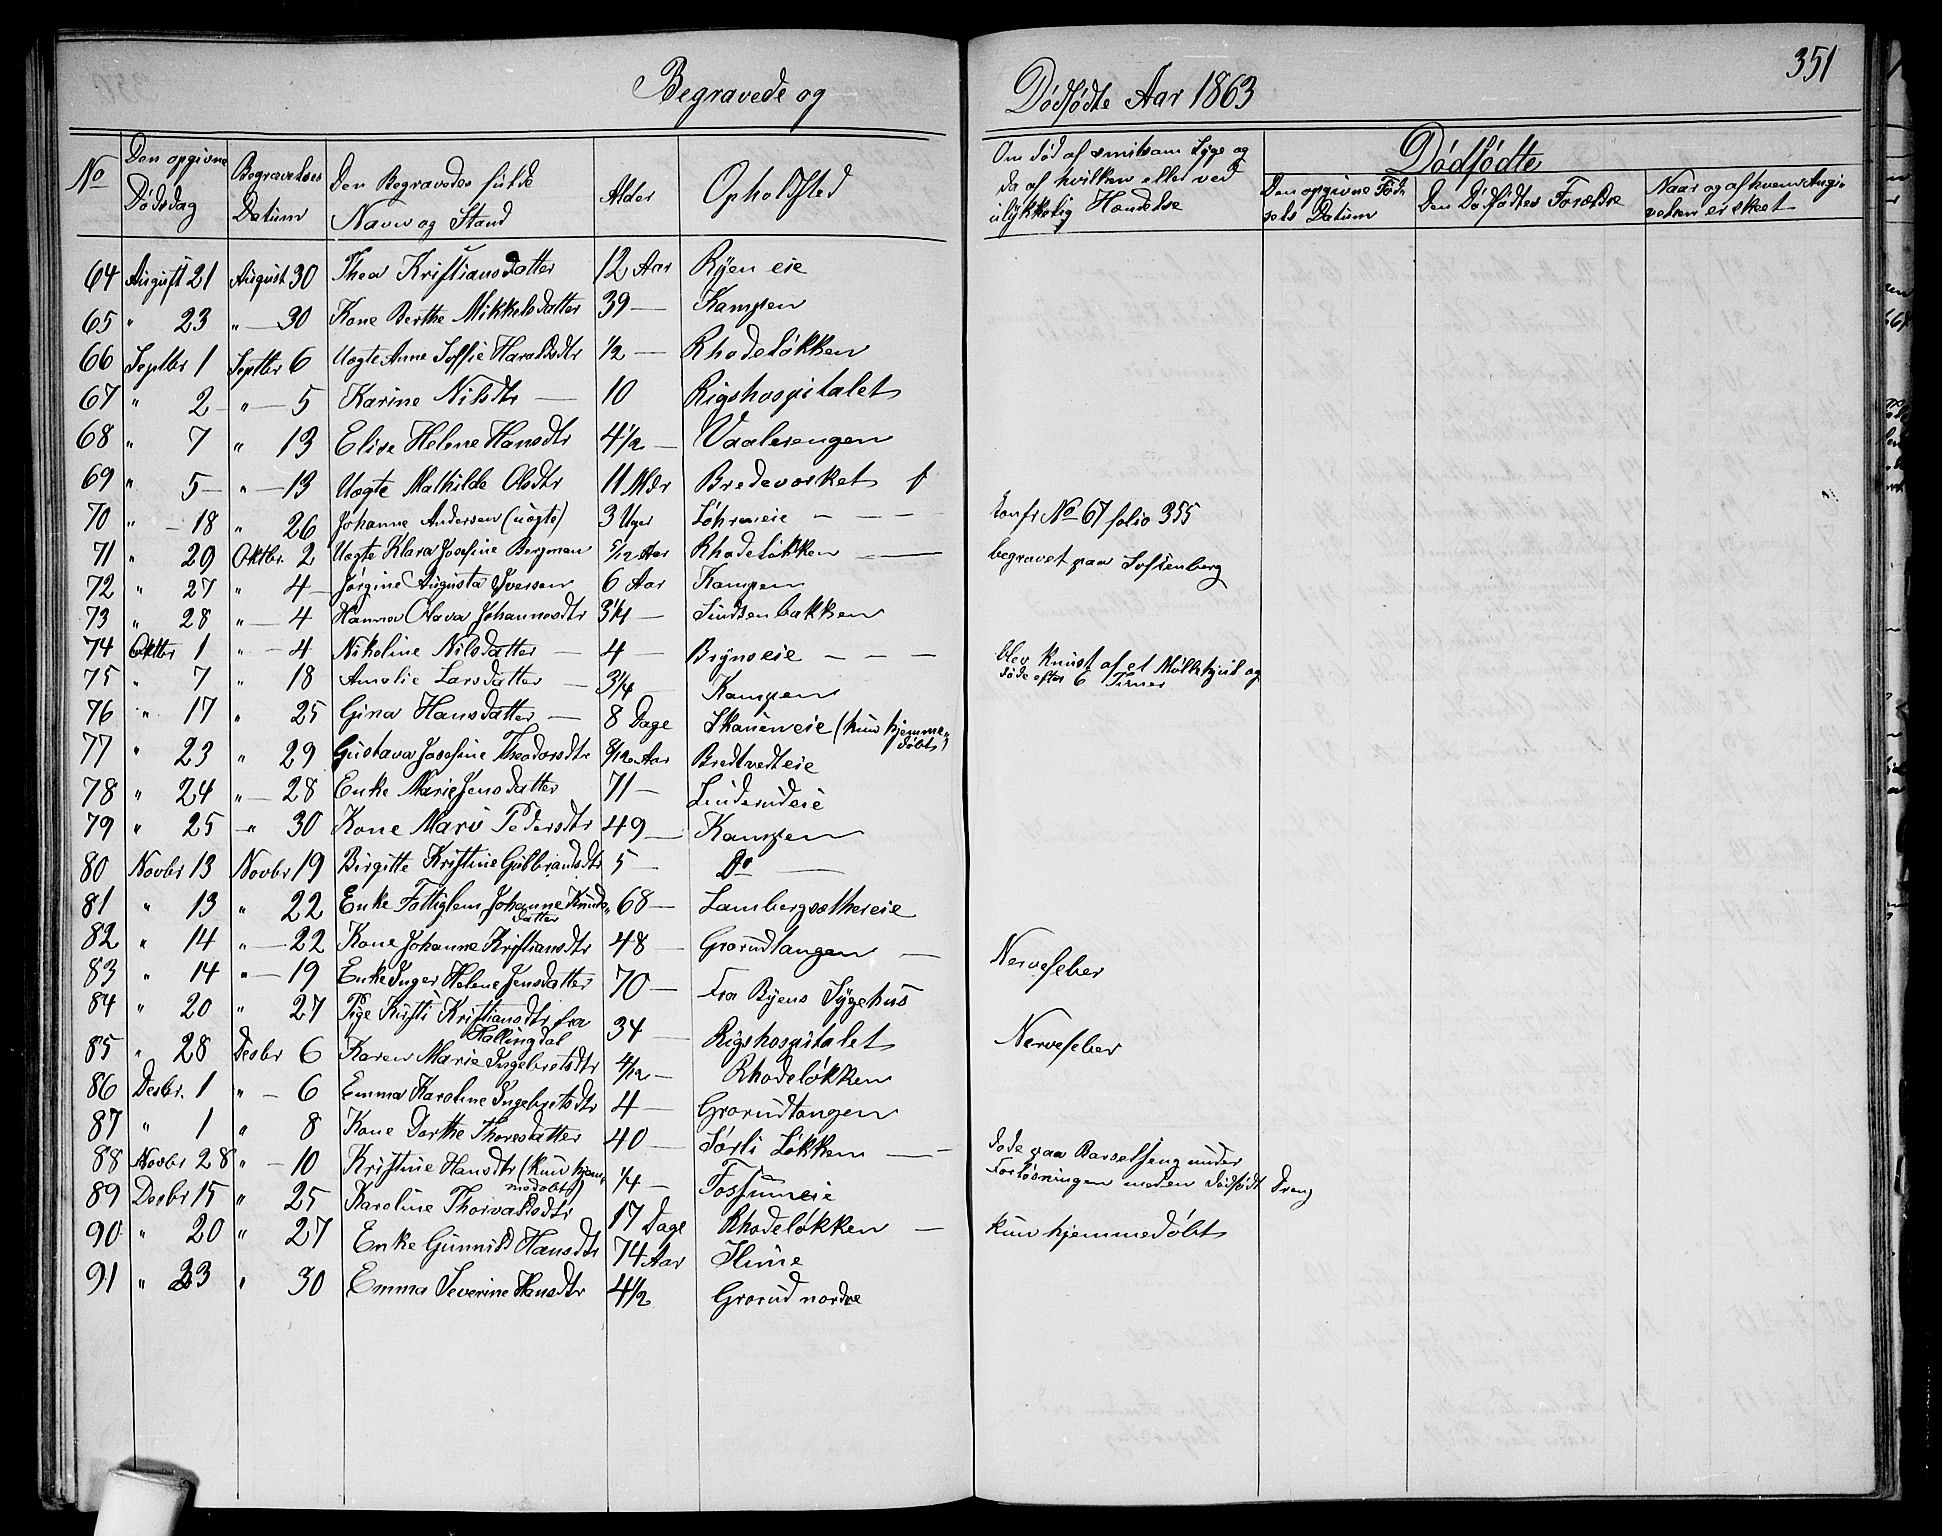 351
Begravede og Dødfødte Aar 1863
No
Den opgivne Dødsdag
Begravelses Datum
Den Begravedes fulde Navn og Stand
Alder
Opholdsted
Om død af smitsom Syge og da af hvilken eller ved ulykkelig Hændelse
Dødfødte
Den opgivne Fødsels Datum
Den Dødfødtes Forældre
Naar og af hvem Angivelsen er skeet
64 August 21 August 30 Thea Kristiansdatter 12 Aar Ryen eie
65 " 23 " — 30 Kone Berthe Mikkelsdatter 39 — Kampen
66 Septbr 1 Septbr 6 Uegte Anne Soffie Haraldsdtr 1/2 — Rhodeløkken
67 " 2 " — 5 Karine Nilsdtr — 10 Rigshospitalet
68 " 7 " 13 Elise Helene Hansdtr 4 1/2 — Vaalerengen
69 " 5 — " — 13 Uegte Mathilde Olsdtr 11 Mdr Bredevosket f
70 " — 18 " 26 Johanne Andersen (uegte) 3 Uger Løhreneie — — — Confr No 67 folio 355
71 " 29 Oktbr. 2 Uegte Klara Josefine Bergman 5/12 Aar Rhodeløkken — — begravet paa Sofienberg
72 " 27 " 4 — Jørgine Augusta Iversen 6 Aar Kampen
73 " 28 " — 4 Hanna Olava Johannesdtr 3 1/4 — Sindsenbakken
74 Oktbr 1 " — 4 Nikoline Nilsdatter — 4 — Brynseie — — — blev knust af et Møllehjul og døde efter 6 Timer
75 " 7 " 18 Amalie Larsdatter — 3 1/4 — Kampen
76 " 17 " 25 Gina Hansdatter — 8 Dage Skøieneie (kun hjemmedøbt)
77 " 23 " 29 Gustava Josefine Theodorsdtr 8/12 Aar Bredtvedteie
78 " 24 " — 28 Enke Marie Jensdatter 71 — Linderudeie
79 " 25 — " 30 Kone Mari Pedersdtr 49 — Kampen
80 Novbr 13 Novbr 19 Birgitte Kristine Gulbrandsdtr 5 — Do —
81 " 13 " 22 Enke Fattiglem Johanne Knudsdatter 68 — Lambergsæthereie
82 " 14 " — 22 Kone Johanne Kristiansdtr 48 — Grorudtangen — Nervefeber
83 " 14 " — 19 Enke Inger Helene Jensdatter 70 — Fra Byens Sygehus
84 " 20 " 27 Pige Kirsti Kristiansdtr fra Hallingdal 34 — Rigshospitalet Nervefeber
85 " 28 Desbr 6 Karen Marie Ingebretsdtr 4/12 — Rhodeløkken
86 Desbr. 1 " — 6 Emma Karoline Ingebretsdtr 4 — Grorudtangen
87 " 1 " 8 Kone Dorthe Thoresdatter 40 — Sørli Løkken — — døde paa Barselseng under Forløsningen med en dødfødt Dreng
88 Novbr 28 " — 10 Kristine Hansdtr (kun hjemmedøbt) 1/4 — Fossumeie
89 Desbr 15 " 25 Karoline Thorvaldsdtr 17 Dage Rhodeløkken — kun hjemmedøbt
90 " 20 " 27 Enke Gunnild Hansdtr 74 Aar
91 " 23 " 30 Emma Severine Hansdtr 4 1/2 Grorud nordre